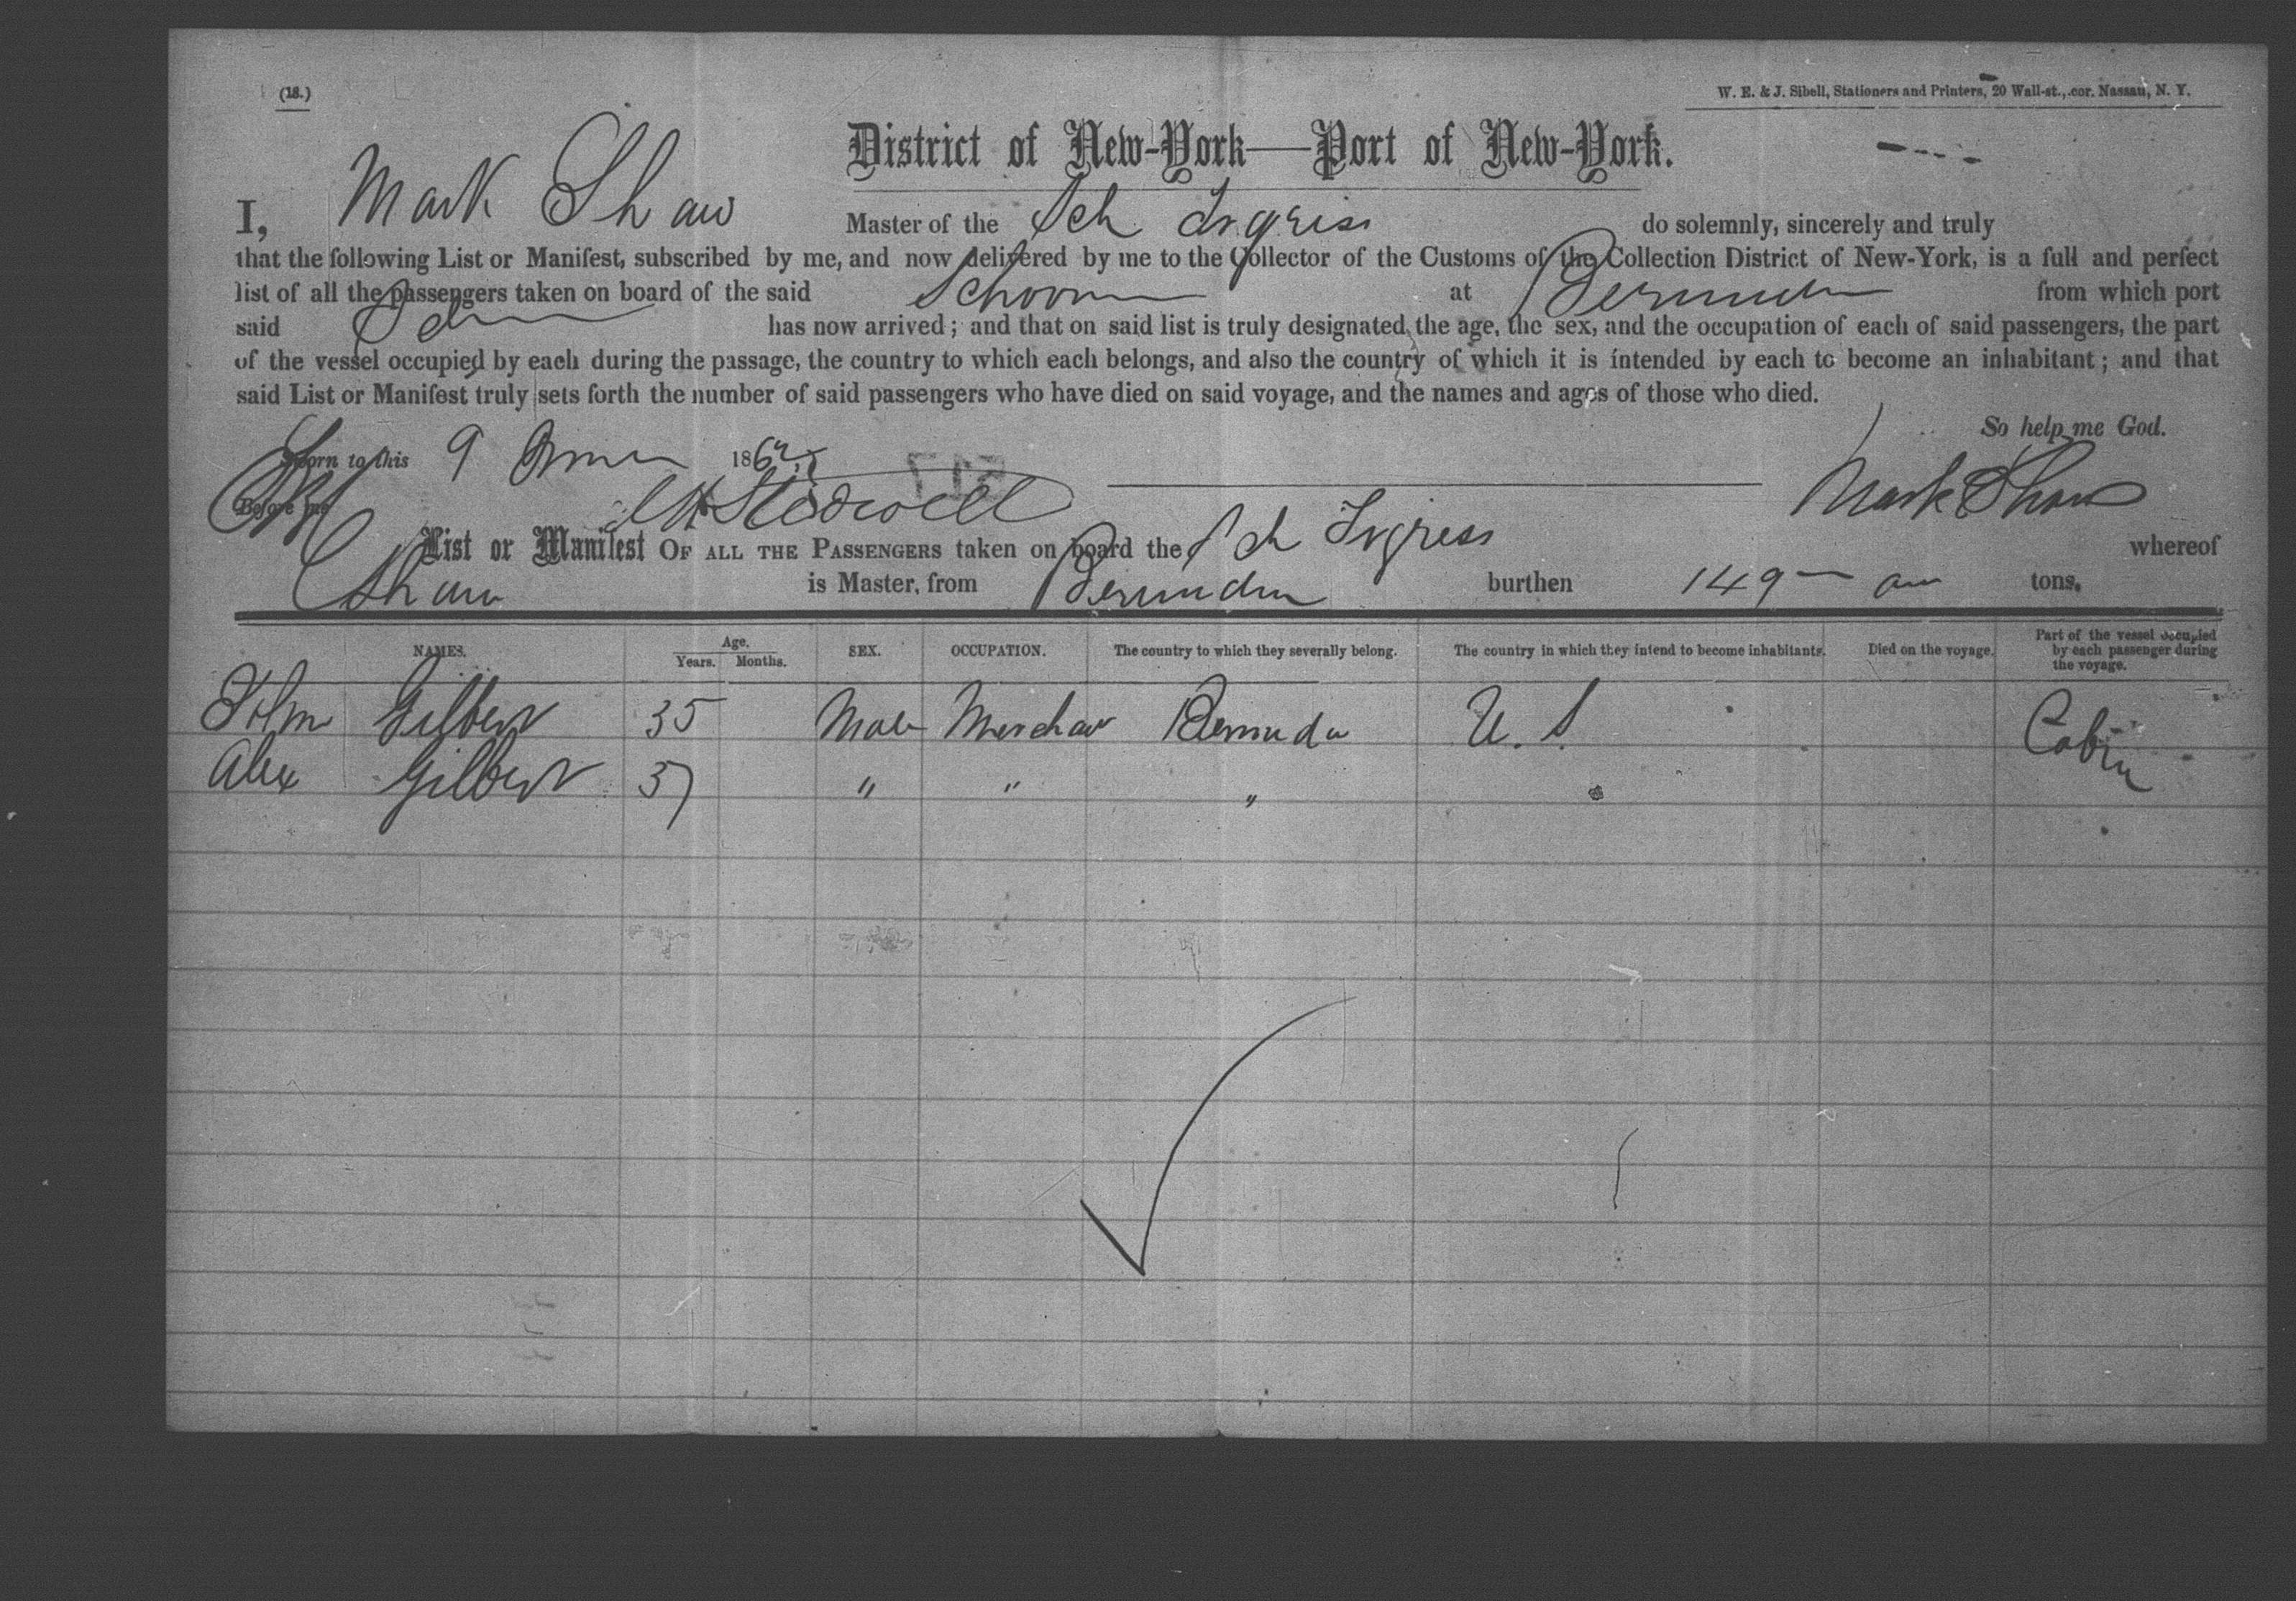 (18.)
W. E. & J. Sibell, Stationers and Printers, 20 Wall-st., cor. Nassau, N. Y.
District of New-York—Port of New-York.
I, Mark Shaw Master of the Sch do solemnly, sincerely and truly
that the following List or Manifest, subscribed by me, and now delivered by me to the Collector of the Customs of the Collection District of New-York, is a full and perfect
list of all the passengers taken on board of the said Schoon at Bermuda from which port
said Sch has now arrived; and that on said list is truly designated the age, the sex, and the occupation of each of said passengers, the part
of the vessel occupied by each during the passage, the country to which each belongs, and also the country of which it is intended by each to become an inhabitant; and that
said List or Manifest truly sets forth the number of said passengers who have died on said voyage, and the names and ages of those who died.
So help me God.
Sworn to this 9 186
Before me Mark Shaw
List or Manifest OF ALL THE PASSENGERS taken on board the Sch whereof
Shaw is Master, from Bermuda burthen 149 tons.
NAMES. Age. Years. Months. SEX. OCCUPATION. The country to which they severally belong. The country in which they intend to become inhabitants. Died on the voyage. Part of the vessel occupied by each passenger during the voyage.
John Gilbert 35 Male Merchant Bermuda U. S. Cabin
Alex Gilbert 37 " " "